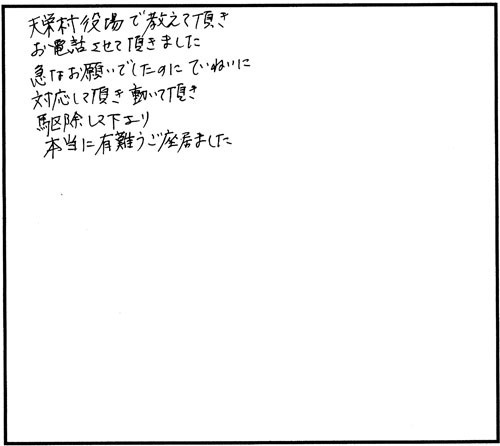 天栄村役場で教えて頂き
お電話させて頂きました
急なお願いでしたのにていねいに
対応して頂き動いて頂き
駆除して下さり
本当に有難うご座居ました